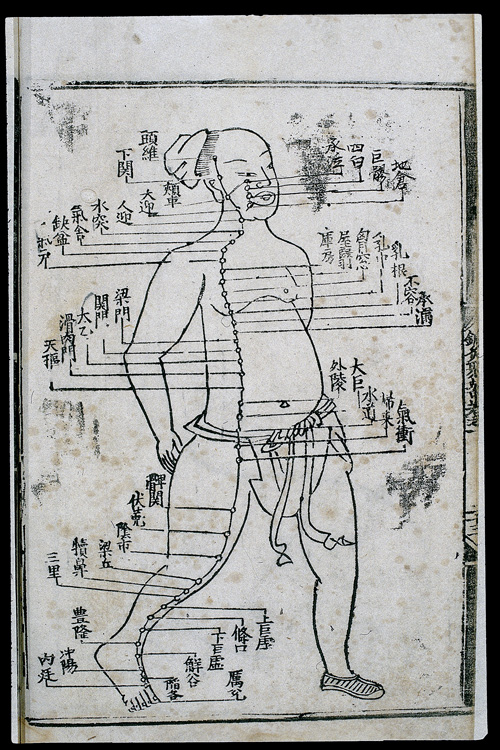 頭維
下関
頰車
大迎
人迎
水突
氣舍
缺盆
承泣
四白
巨髎
地倉
庫房
屋翳
膺窓
乳中
乳根
不容
承滿
梁門
関門
太乙
滑肉門
天樞
外陵
大巨
水道
歸来
氣衝
髀関
伏兎
陰市
梁丘
犢鼻
三里
上巨虛
條口
下巨虛
豊隆
觧谷
冲陽
內廷
厲兊